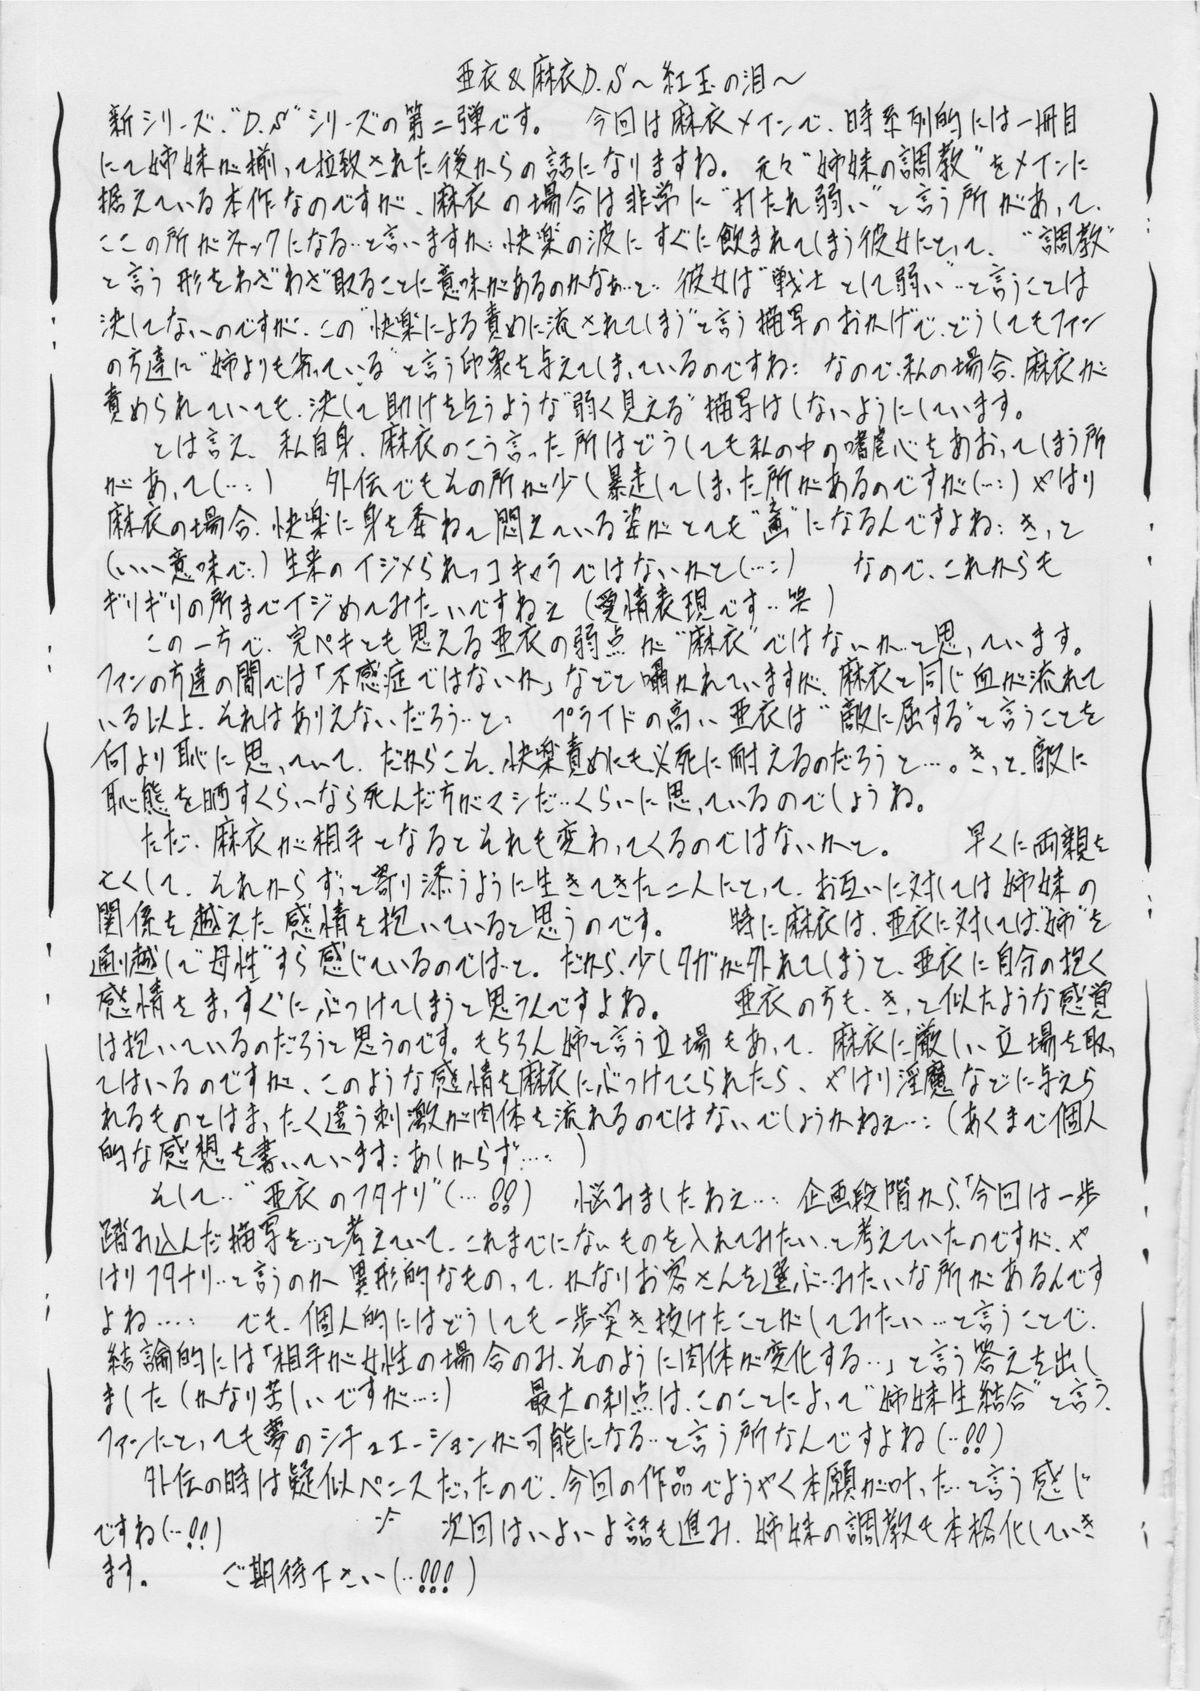 亜衣&麻衣D.S～紅玉の泪～
新シリーズ、"D.S"シリーズの第二弾です。 今回は麻衣メインで、時系列的には一冊目
にて姉妹が揃って拉致された後からの話になりますね。 元々"姉妹の調教"をメインに
据えている本作なのですが、麻衣の場合は非常に"打たれ弱い"と言う所があって、
ここの所がネックになる…と言いますか…快楽の波にすぐに飲まれてしまう彼女にとって、"調教"
と言う形をわざわざ取ることに意味があるのかなぁ…と… 彼女は"戦士として弱い"…と言うことは
決してないのですが、この"快楽による責めに流されてしまう"と言う描写のおかげで、どうしてもファン
の方達に"姉よりも劣っている"と言う印象を与えてしまっているのですね… なので、私の場合、麻衣が
責められていても、決して助けを乞うような"弱く見える"描写はしないようにしています。
とは言え、私自身、麻衣のこう言った所はどうしても私の中の嗜虐心をあおってしまう所
があって(…;) 外伝でもその所が少し暴走してしまった所があるのですが(…;)やはり
麻衣の場合、快楽に身を委ねて悶えている姿がとても"画"になるんですよね… きっと
(いい意味で…)生来のイジメられっコキャラではないかと(…;) なので、これからも
ギリギリの所までイジめてみたいですねぇ(愛情表現です…笑)
この一方で、完ペキとも思える亜衣の弱点が"麻衣"ではないか…と思っています。
ファンの方達の間では「不感症ではないか」などと囁かれていますが、麻衣と同じ血が流れて
いる以上、それはありえないだろう…と… プライドの高い亜衣は"敵に屈する"と言うことを
何より恥に思っていて、だからこそ、快楽責めにも必死に耐えるのだろうと…。きっと、敵に
恥態を晒すくらいなら死んだ方がマシだ…くらいに思っているのでしょうね。
ただ、麻衣が相手となるとそれも変わってくるのではないかと。 早くに両親を
亡くして、それからずっと寄り添うように生きてきた二人にとって、お互いに対しては姉妹の
関係を越えた感情を抱いていると思うのです。 特に麻衣は、亜衣に対しては"姉"を
通り越して"母性"すら感じているのでは…と。だから、少しタガが外れてしまうと、亜衣に自分の抱く
感情をまっすぐにぶつけてしまうと思うんですよね。 亜衣の方も、きっと似たような感覚
は抱いているのだろうと思うのです。もちろん姉と言う立場もあって、麻衣に厳しい立場を取っ
てはいるのですが、このような感情を麻衣にぶつけてこられたら、やはり淫魔などに与えら
れるものとはまったく違う刺激が肉体を流れるのではないでしょうかねぇ…(あくまで個人
的な感想を書いています…あしからず…)
そして…"亜衣のフタナリ"(…!!) 悩みましたねぇ… 企画段階から、「今回は一歩
踏み込んだ描写を…」と考えていて、これまでにないものを入れてみたい…と考えていたのですが、や
はりフタナリ…と言うのか異形的なものって、かなりお客さんを選ぶ…みたいな所があるんです
よね… でも、個人的にはどうしても一歩突き抜けたことがしてみたい…と言うことで、
結論的には「相手が女性の場合のみ、そのように肉体が変化する…」と言う答えを出し
ました(かなり苦しいですが…;) 最大の利点は、このことによって"姉妹生結合"と言う、
ファンにとっても夢のシチュエーションが可能になる…と言う所なんですよね(…!!)
外伝の時は疑似ペニスだったので、今回の作品でようやく本願が叶った…と言う感じ
ですね(…!!) 次回はいよいよ話も進み、姉妹の調教も本格化していき
ます。 ご期待下さい(…!!!)